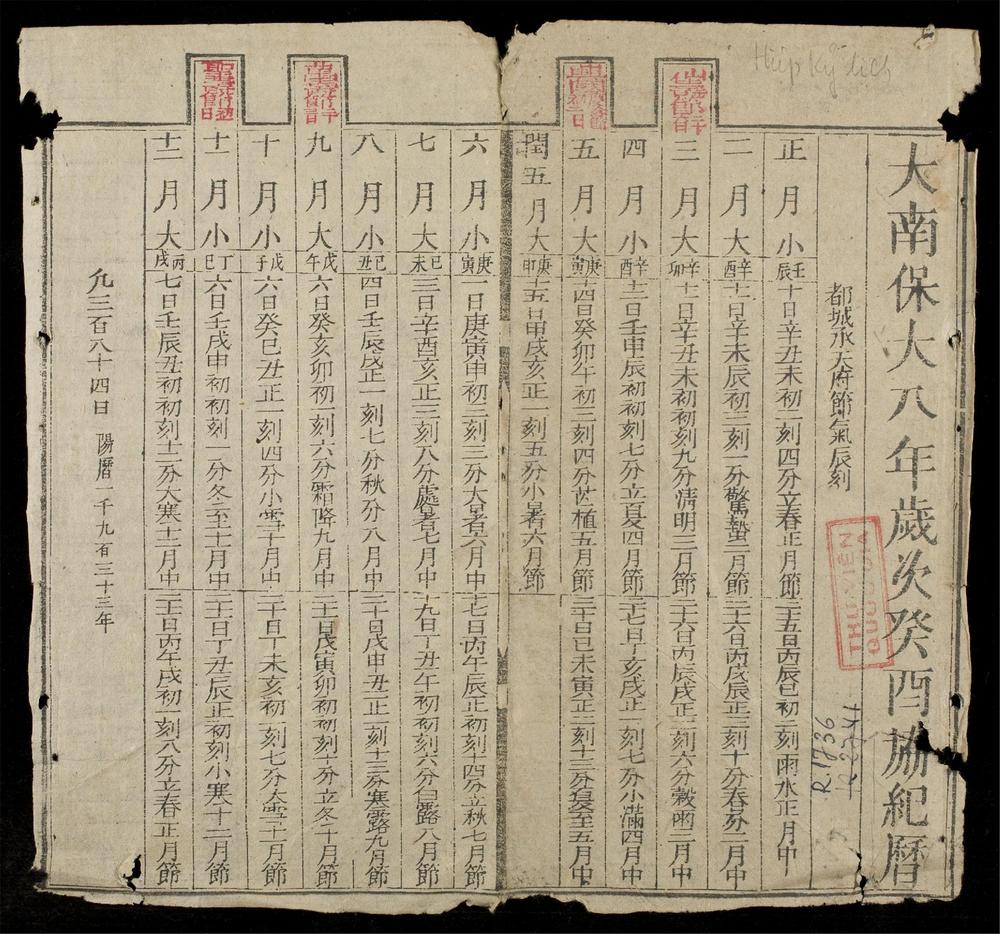 大南保大八年歲次癸酉協紀曆
都城承天府節氣辰刻
正月小壬辰十日辛丑未初二刻四分立春正月節二十五日丙辰巳初二刻雨水正月中
二月大辛酉十一日辛未辰初三刻一分驚蟄二月節二十六日丙戌辰正三刻十分春分二月中
三月大辛卯十一日辛丑未初初刻九分清明三月節二十六日丙辰戌正一刻六分穀雨三月中
四月小辛酉十二日壬申辰初初刻七分立夏四月節二十七日丁亥戌正一刻七分小滿四月中
五月大庚寅十四日癸卯午初三刻四分芒植五月節三十日己未寅正二刻十三分夏至五月中
閏五月大庚申十五日甲戌亥正一刻五分小暑六月節
六月小庚寅一日庚寅申初三刻三分大暑六月中十七日丙午辰正初刻十四分立秋七月節
七月大己未三日辛酉亥正三刻八分處暑七月中十九日丁丑午初初刻六分白露八月節
八月小己丑四日壬辰戌正一刻七分秋分八月中二十日戊申丑正一刻十三分寒露九月節
九月大戊午六日癸亥卯初初刻六分霜降九月中二十一日戊寅卯初初刻十分立冬十月節
十月小戊子六日癸巳丑正一刻四分小雪十月中二十日丁未亥初一刻七分大雪十一月節
十一月小丁巳六日壬戌申初初刻一分冬至十一月中二十一日丁丑辰正初刻小寒十二月節
十二月大丙戌七日壬辰丑初初刻十一分大寒十二月中二十一日丙午戌初一刻八分立春正月節
凡三百八十四日 陽曆一千九百三十三年
Hiệp kỷ lịch
THƯ VIỆN
QUỐC GIA
R.1736